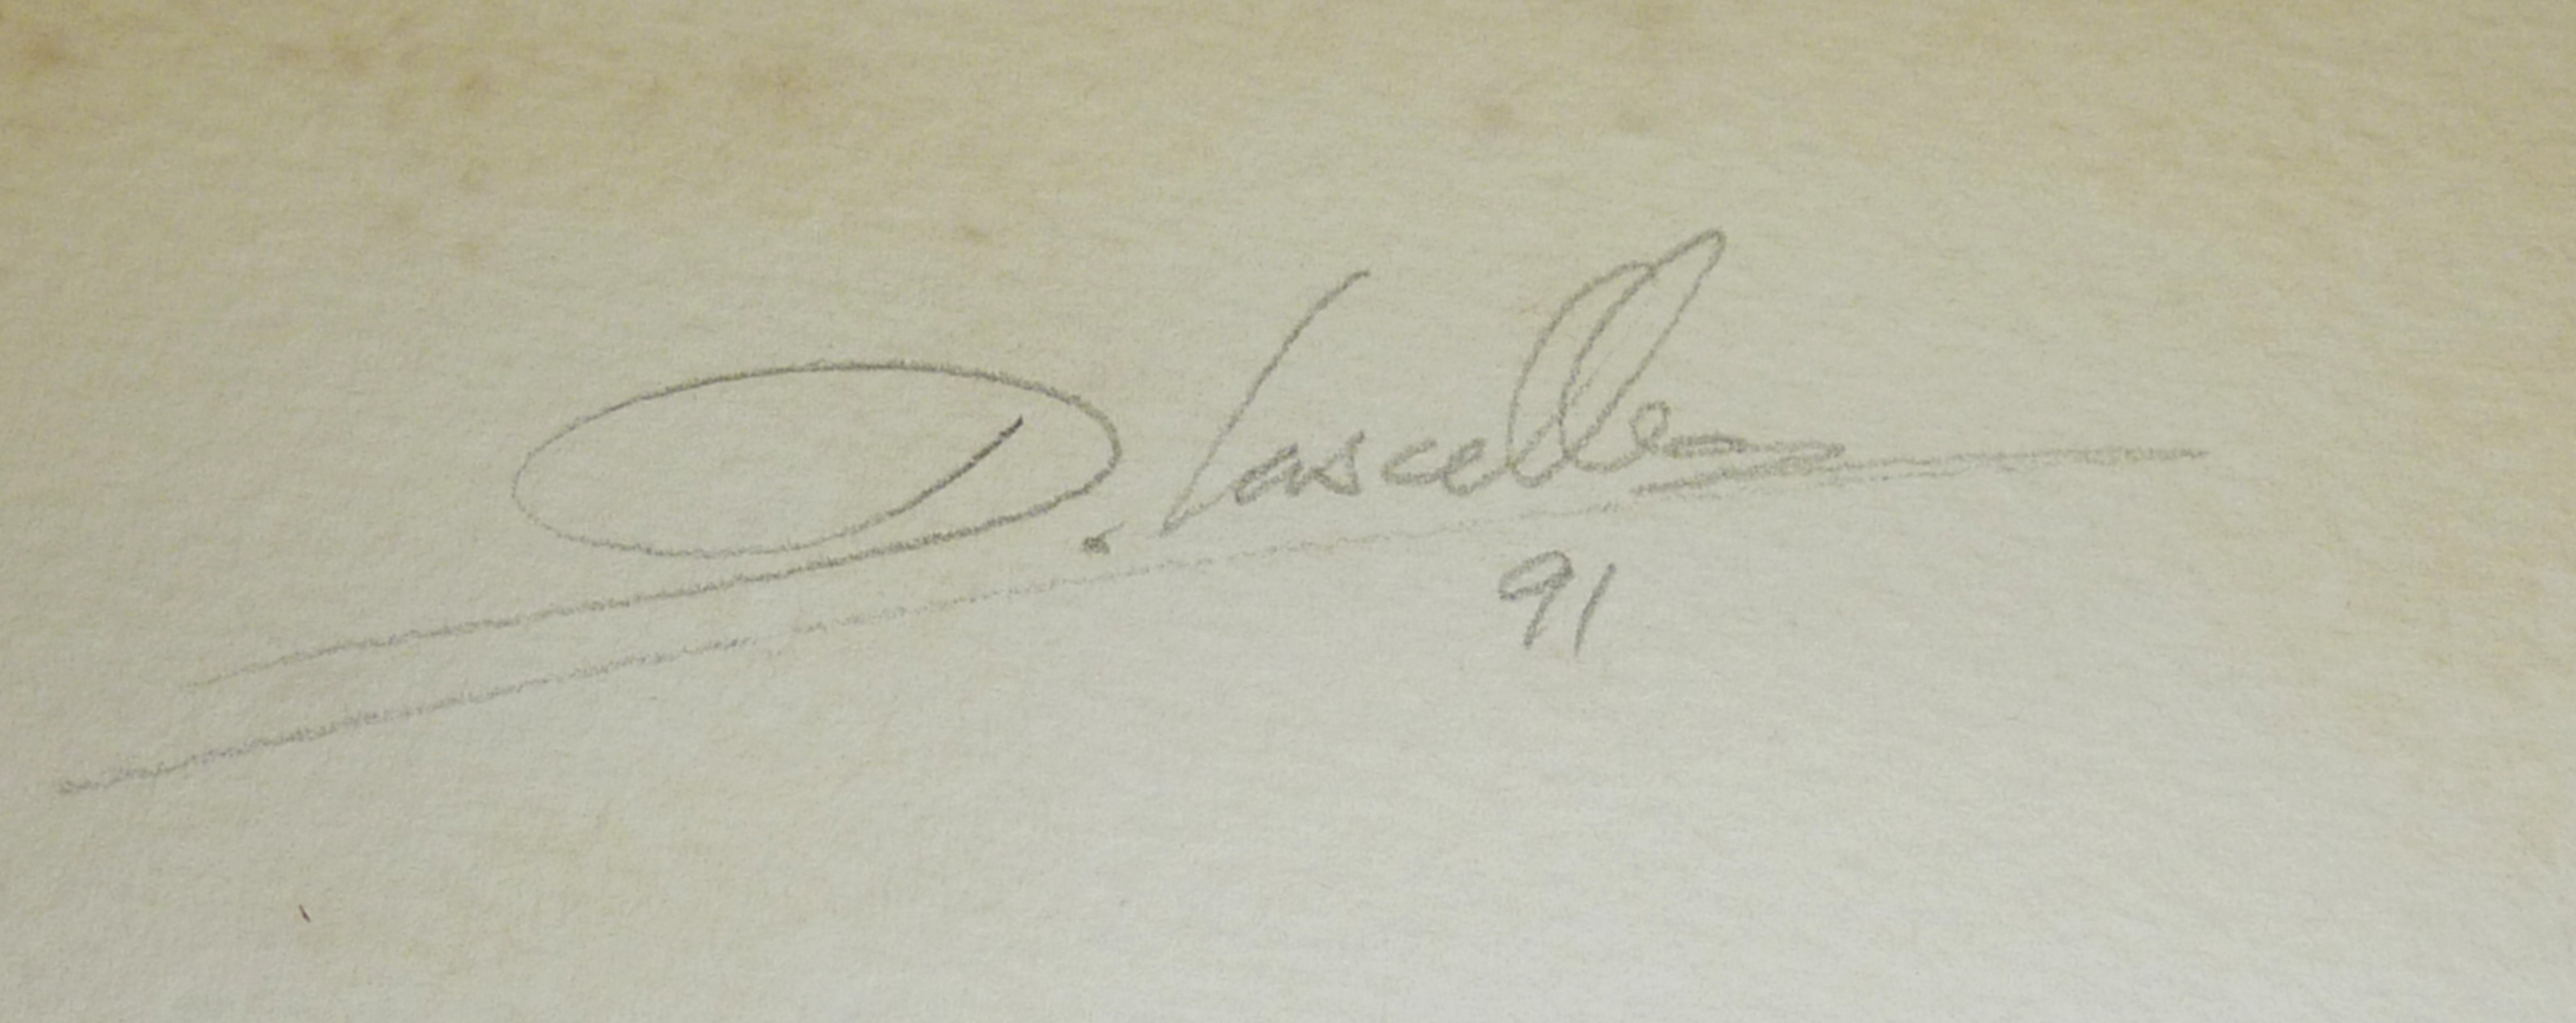 D. Lascelles
91